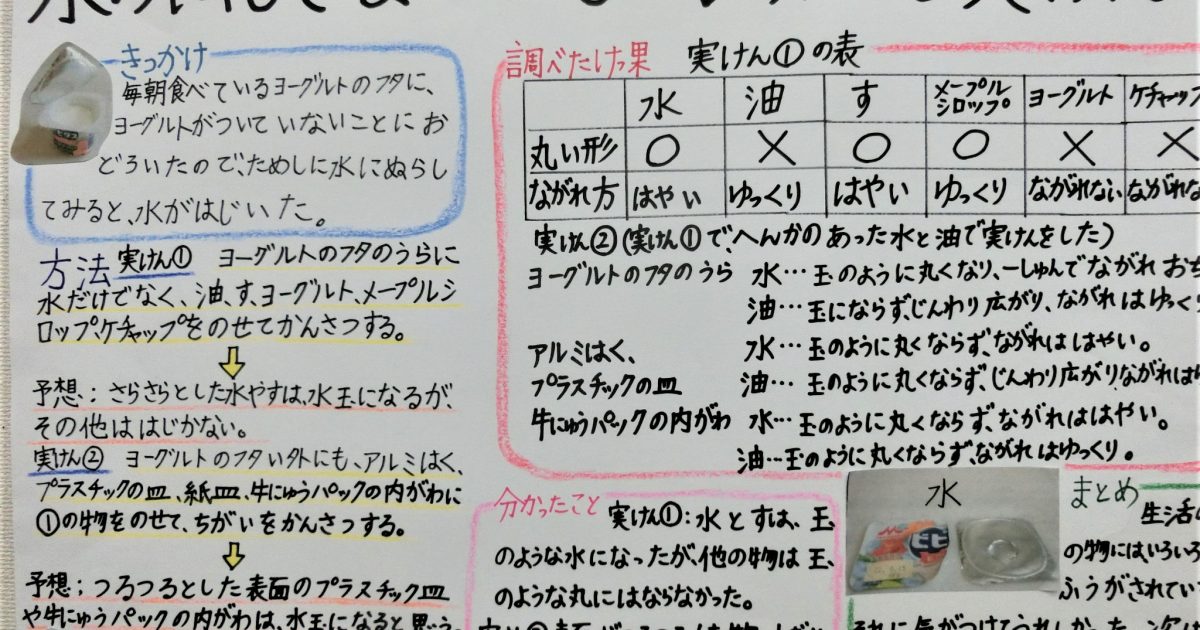 きっかけ
毎朝食べているヨーグルトのフタに、
ヨーグルトがついていないことにお
どろいたので、ためしに水にぬらし
てみると、水がはじいた。
方法 実けん① ヨーグルトのフタのうらに
水だけでなく、油、す、ヨーグルト、メープルシ
ロップ、ケチャップをのせてかんさつする。
予想：さらさらとした水やすは、水玉になるが、
その他は はじかない。
実けん② ヨーグルトのフタい外にも、アルミはく、
プラスチックの皿、紙皿、牛にゅうパックの内がわに
①の物をのせて、ちがいをかんさつする。
予想：つるつるとした表面のプラスチック皿
や牛にゅうパックの内がわは、水玉になると思う。
調べたけっ果 実けん①の表
水 油 す メープルシロップ ヨーグルト ケチャップ
丸い形 ○ × ○ ○ × ×
ながれ方 はやい ゆっくり はやい ゆっくり ながれない ながれな
実けん②(実けん①で、へんかのあった水と油で実けんをした)
ヨーグルトのフタのうら 水…玉のように丸くなり、一しゅんでながれおち
油…玉にならず、じんわり広がり、ながれはゆっく
アルミはく、 水…玉のように丸くならず、ながれははやい。
プラスチックの皿 油…玉のように丸くならず、じんわり広がり、ながれは
牛にゅうパックの内がわ 水…玉のように丸くならず、ながれははやい。
油…玉のように丸くならず、ながれはゆっくり。
分かったこと 実けん①：水とすは、玉
のような水になったが、他の物は玉、
のような丸にはならなかった。
水
まとめ
生活
の物にはいろいろ
ふうがされてい